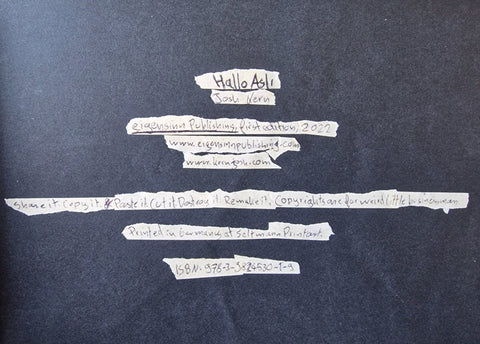 Hallo Asli
Josh Kern
eigensinn Publishing, first edition, 2022
www.eigensinnpublishing.com
www.kernjosh.com
Share it. Copy it. Paste it. Cut it. Destroy it. Remake it. Copyrights are for weird little businessmen
Printed in Germany at Seltmann Printart.